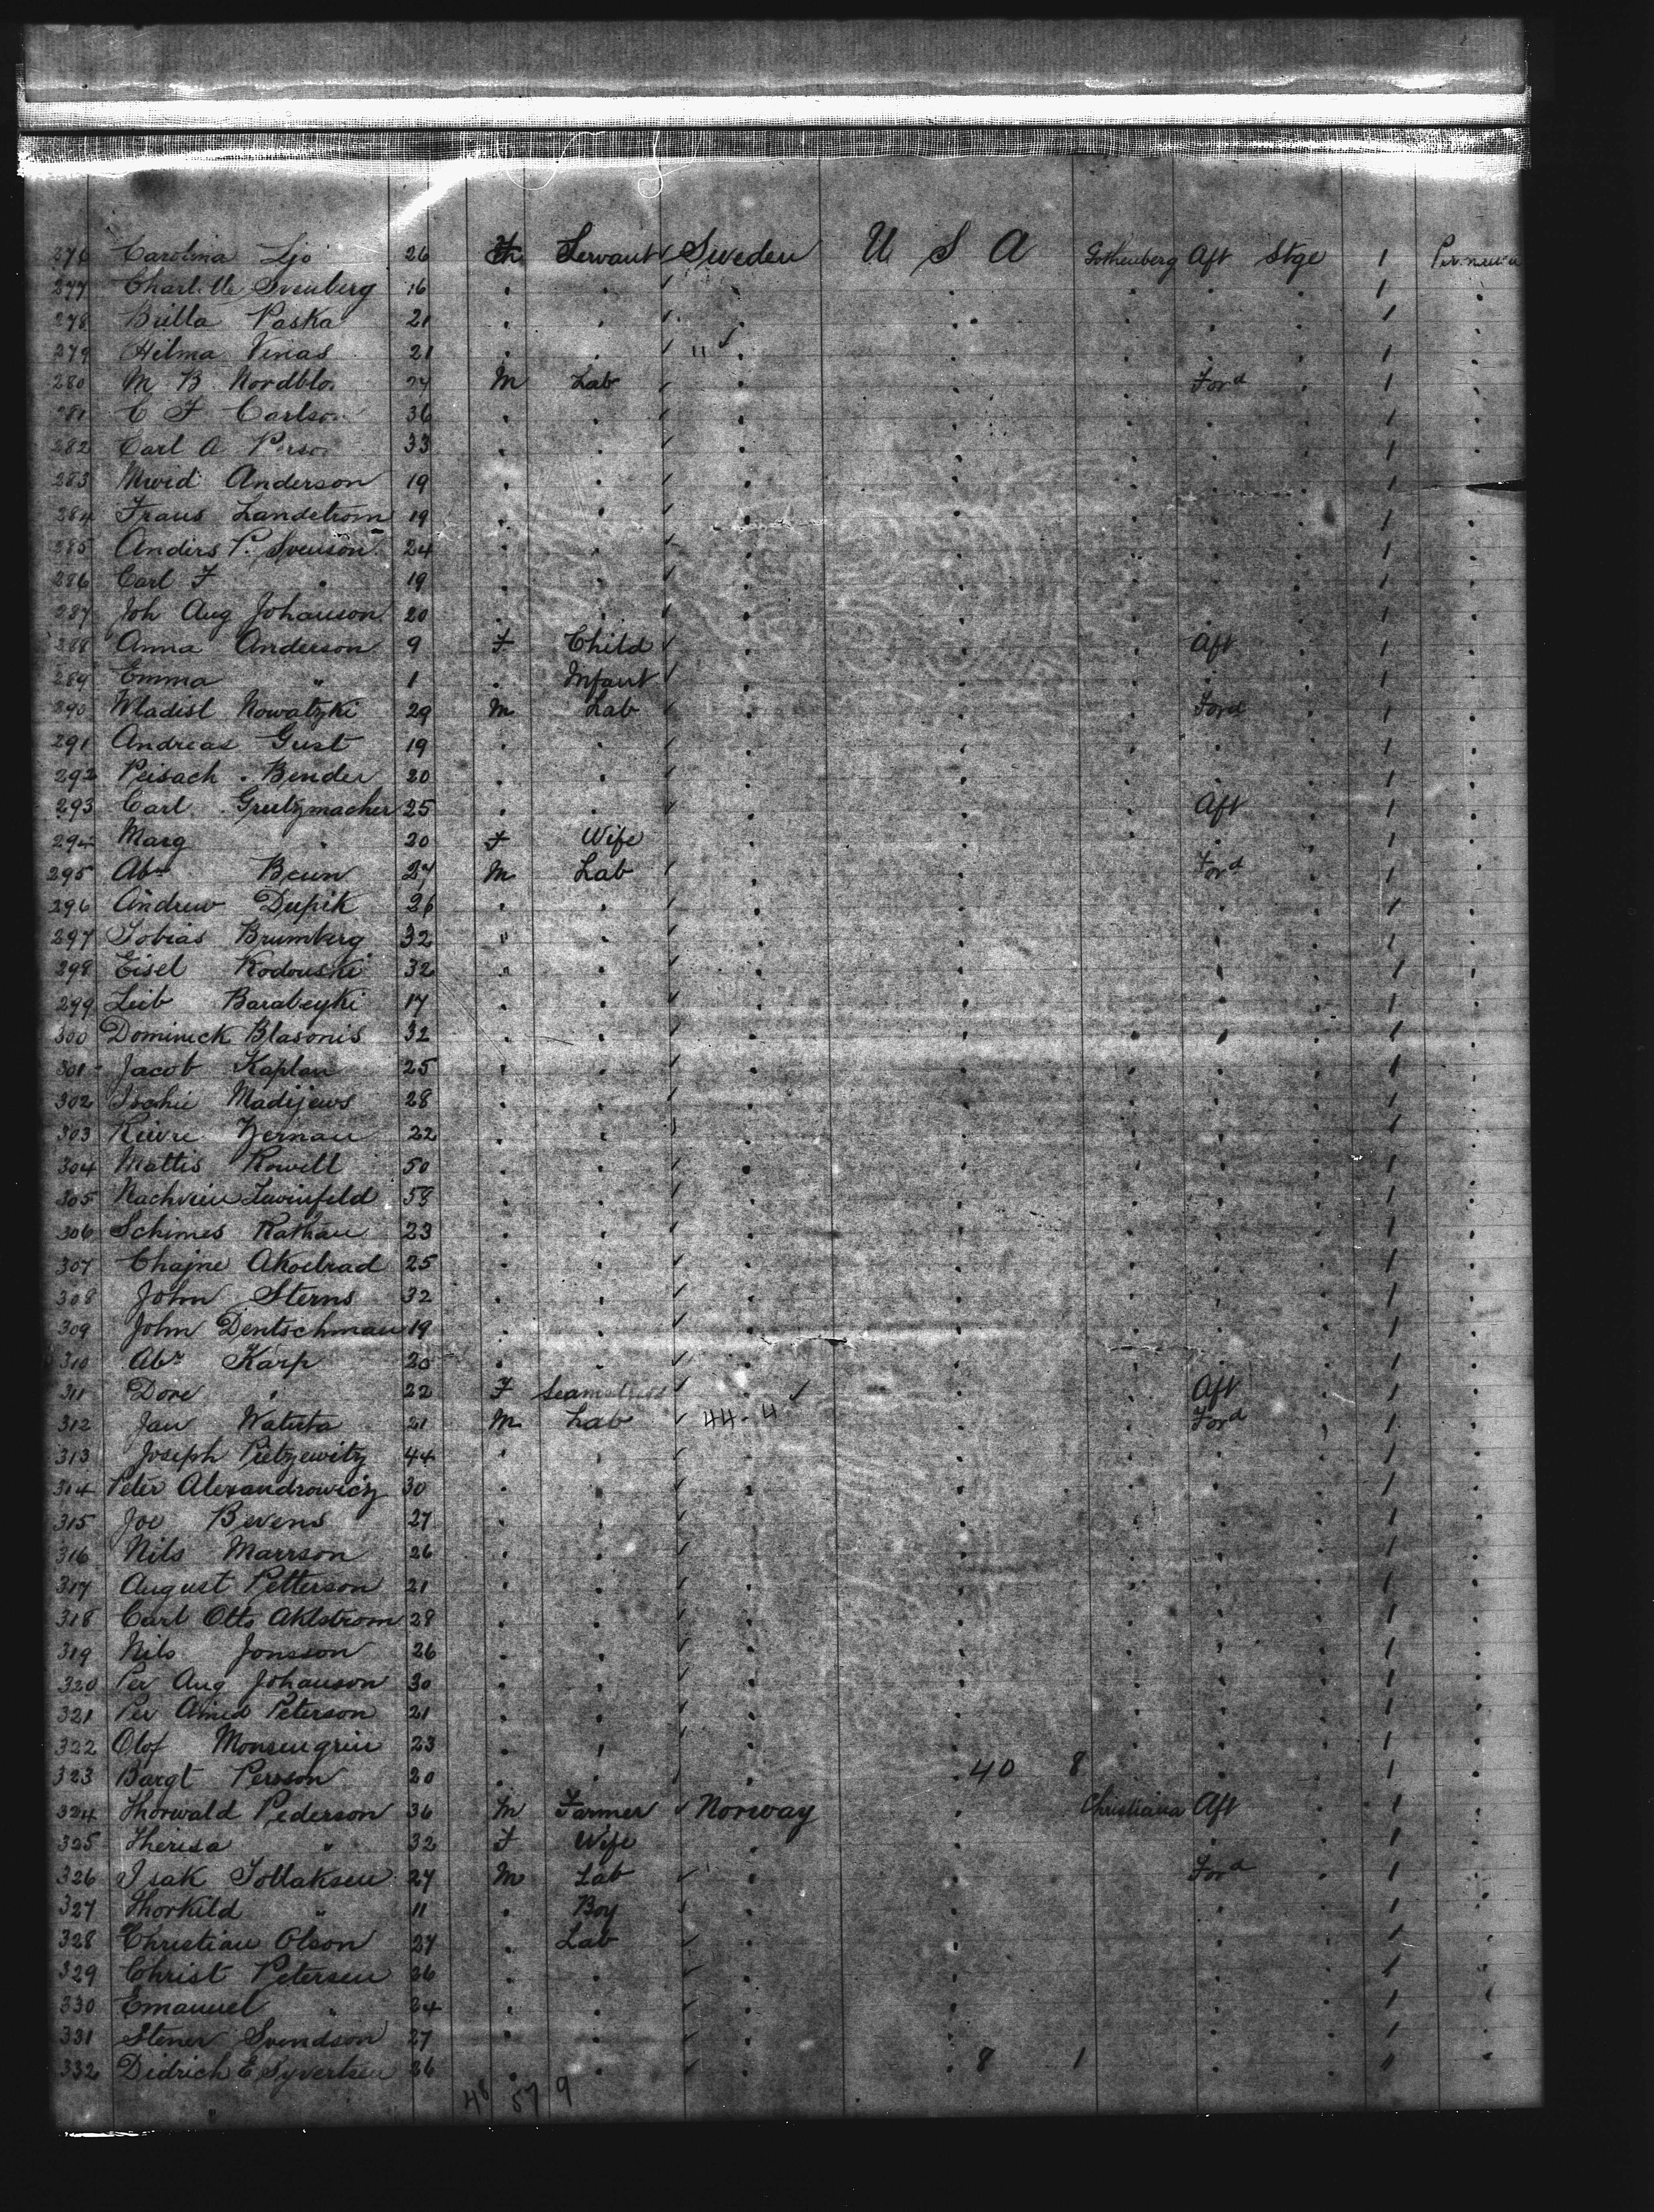 276 Carolina Ljo 26 Servant Sweden U S A Gothenberg Aft Stge 1
277 Svenberg 16 1
278 Brilla Paska 21 1
279 Hilma Vinas 21 " 1
280 M B Nordblo 27 M Lab Ford 1
281 C F Carlson 36 1
282 Carl A Perso 33 1
283 Anderson 19 1
284 Frans Landstrom 19 1
285 Anders P. Svenson 24 1
286 Carl F " 19 1
287 Joh Aug Johanson 20 1
288 Anna Anderson 9 F Child Aft 1
289 Emma " 1 Infant 1
290 Wladisl Nowatzki 29 M Lab Ford 1
291 Andreas Gust 19 1
292 Peisach Bender 20 1
293 Carl Grutzmacher 25 Aft 1
294 Marg " 20 F Wife 1
295 Abm 27 M Lab Ford 1
296 Andrew Dupik 26 1
297 Tobias Brumberg 32 " 1
298 Eisel Kodouski 32 " 1
299 Leib Barabeyki 17 1
300 Dominick Blasonis 32 1
301 Jacob Kaplan 25 1
302 Madijews 28 1
303 22 1
304 Mattis Rowell 50 1
305 58 1
306 Schimes Nathan 23 1
307 Chajne Akoelrad 25 1
308 John Sterns 32 1
309 John Dentschman 19 1
310 Abr Karp 20 1
311 Dore " 22 F Seamstress Aft 1
312 Jan Watuta 21 M Lab 44-4 Ford 1
313 Joseph Pietzewitz 44 1
314 Peter Alexandrowicz 30 1
315 Joe Bevens 27 1
316 Nils Marrson 26 1
317 August Petterson 21 1
318 Carl Otto Aklstrom 28 1
319 Nils Jonsson 26 1
320 Per Aug Johanson 30 1
321 Per Peterson 21 1
322 Olof 23 1
323 Bargt Persson 20 40 8 1
324 Thorwald Pederson 36 M Farmer Norway Christiana Aft 1
325 Theresa " 32 F Wife 1
326 Isak Tollaksen 27 M Lab Ford 1
327 Thorkild " 11 Boy 1
328 Christian Olson 27 Lab 1
329 Christ Petersen 26 1
330 Emanuel " 24 1
331 Stener Svendson 27 1
332 Didrich E Syvertsen 26 8 1
48 57 9